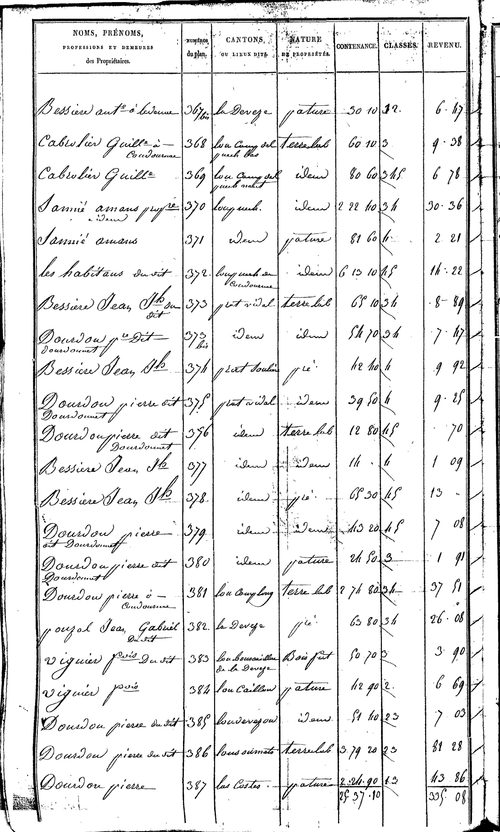 NOMS, PRÉNOMS, PROFESSIONS ET DEMEURES des Propriétaires. NUMÉROS du plan. CANTONS, OU LIEUX DITS. NATURE DE PROPRIÉTÉS. CONTENANCE. CLASSES. REVENU.
Bessiere ant.e à 367 bis la Deveze pature 30 10 12 6 47
Cabrolier Guill.e à Coudournue 368 lou Camp del puech bas terre lab 60 10 3 9 38
Cabrolier Guill.e 369 lou Camp del puech naut idem 80 60 345 6 78
Jannié amans 370 idem 2 22 10 34 30 36
Jannié amans 371 idem pature 81 60 4 2 21
les habitans du dit 372 idem 6 13 10 45 14 22
Bessiere Jean J.h du dit 373 prat vidal terre lab 65 10 34 8 89
Dourdou p.re Dit Dourdounet 373 bis idem idem 54 70 34 7 47
Bessiere Jean J.h 374 prat pré 42 40 4 9 92
Dourdou pierre dit Dourdounet 375 prat vidal idem 39 50 4 9 25
Dourdou pierre dit Dourdounet 376 idem terre lab 12 80 45 70
Bessiere Jean J.h 377 idem idem 14 4 1 09
Bessiere Jean J.h 378 idem pré 65 30 45 13
Dourdou pierre dit Dourdounet 379 idem idem 43 20 45 7 08
Dourdou pierre dit Dourdounet 380 idem pature 24 50 3 1 91
Dourdou pierre à Coudournue 381 lou Camp long terre lab 2 74 80 34 37 51
pouzol Jean Gabriel Du dit 382 la Deveze pré 63 80 34 26 08
viguier f.cois Du dit 383 de la Deveze Bois 50 70 3 3 90
viguier f.cois 384 lou Caillou pature 42 90 2 6 69
Dourdou pierre du dit 385 idem 51 40 23 7 03
Dourdou pierre du dit 386 terre lab 3 79 20 23 81 28
Dourdou pierre 387 las Costes pature 2 24 90 23 43 86
25 37 10 335 08